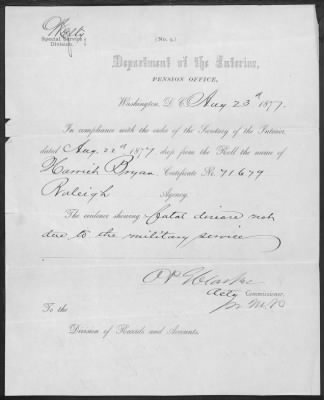 Special Service
Division.
(No. 2.)
Department of the Interior,
PENSION OFFICE,
Washington, D. C. Aug 23d 1877.
In compliance with the order of the Secretary of the Interior,
dated Aug. 22d 1877 drop from the Roll the name of
Harriet Bryan Certificate No. 71679
Raleigh Agency.
The evidence showing fatal disease not
due to the military service
Actg Commissioner.
To the
Division of Records and Accounts.